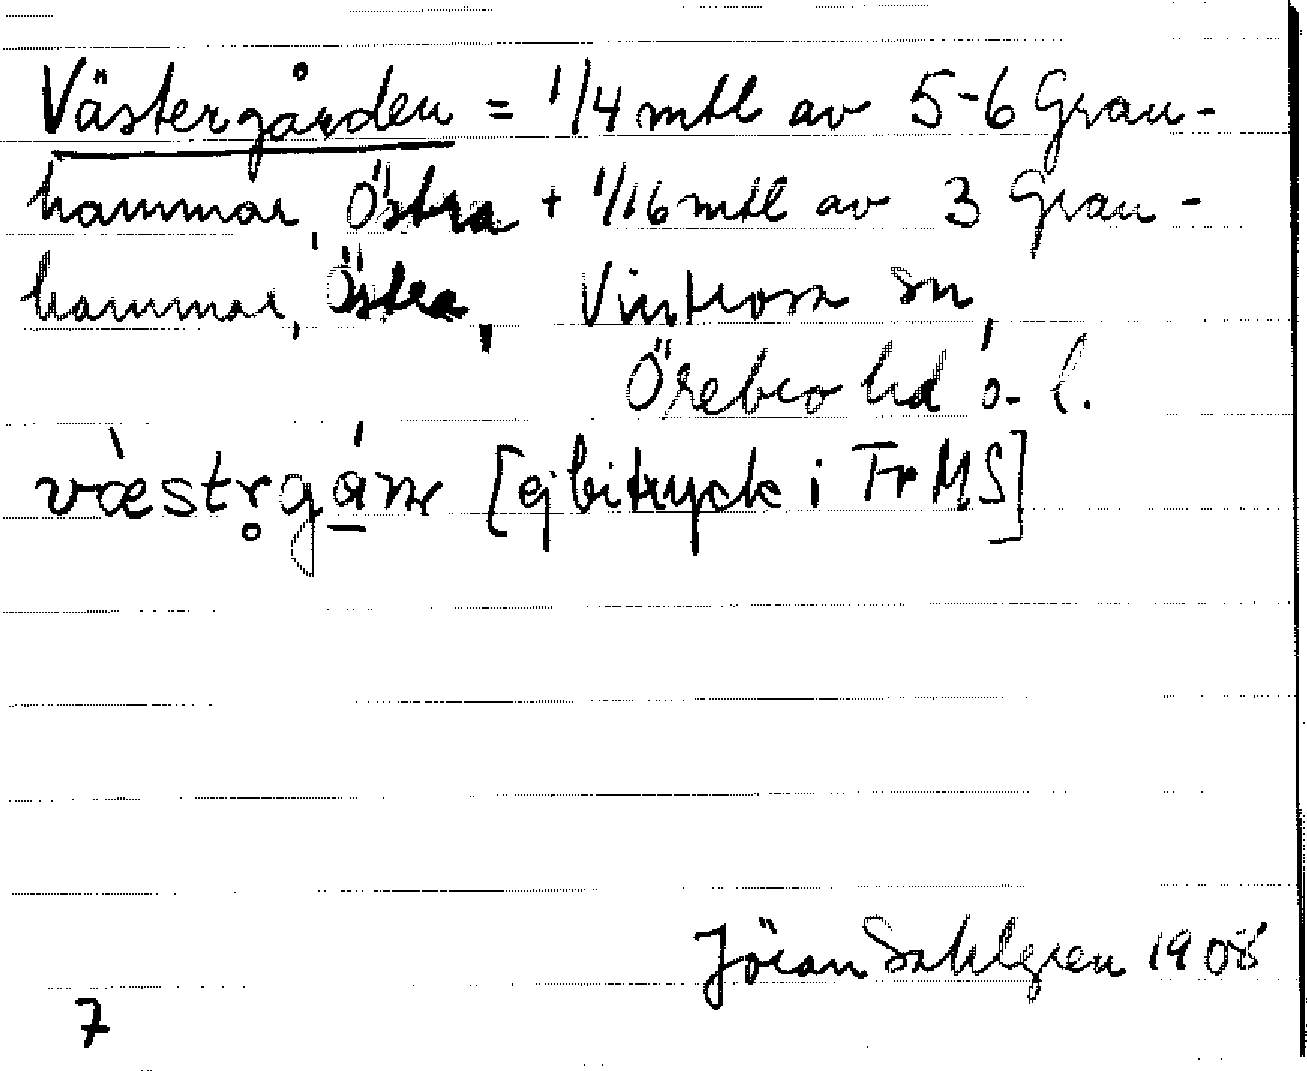 Västergården = 1/4 mtl av 5-6 Gran-
hammar, Östra + 1/16 mtl av 3 Gran-
hammar, Östra, Vintrosa sn,
Örebro hd o. l.
væ̀strg [ej bitryck i Fr MS]
Jöran Sahlgren 1908
7